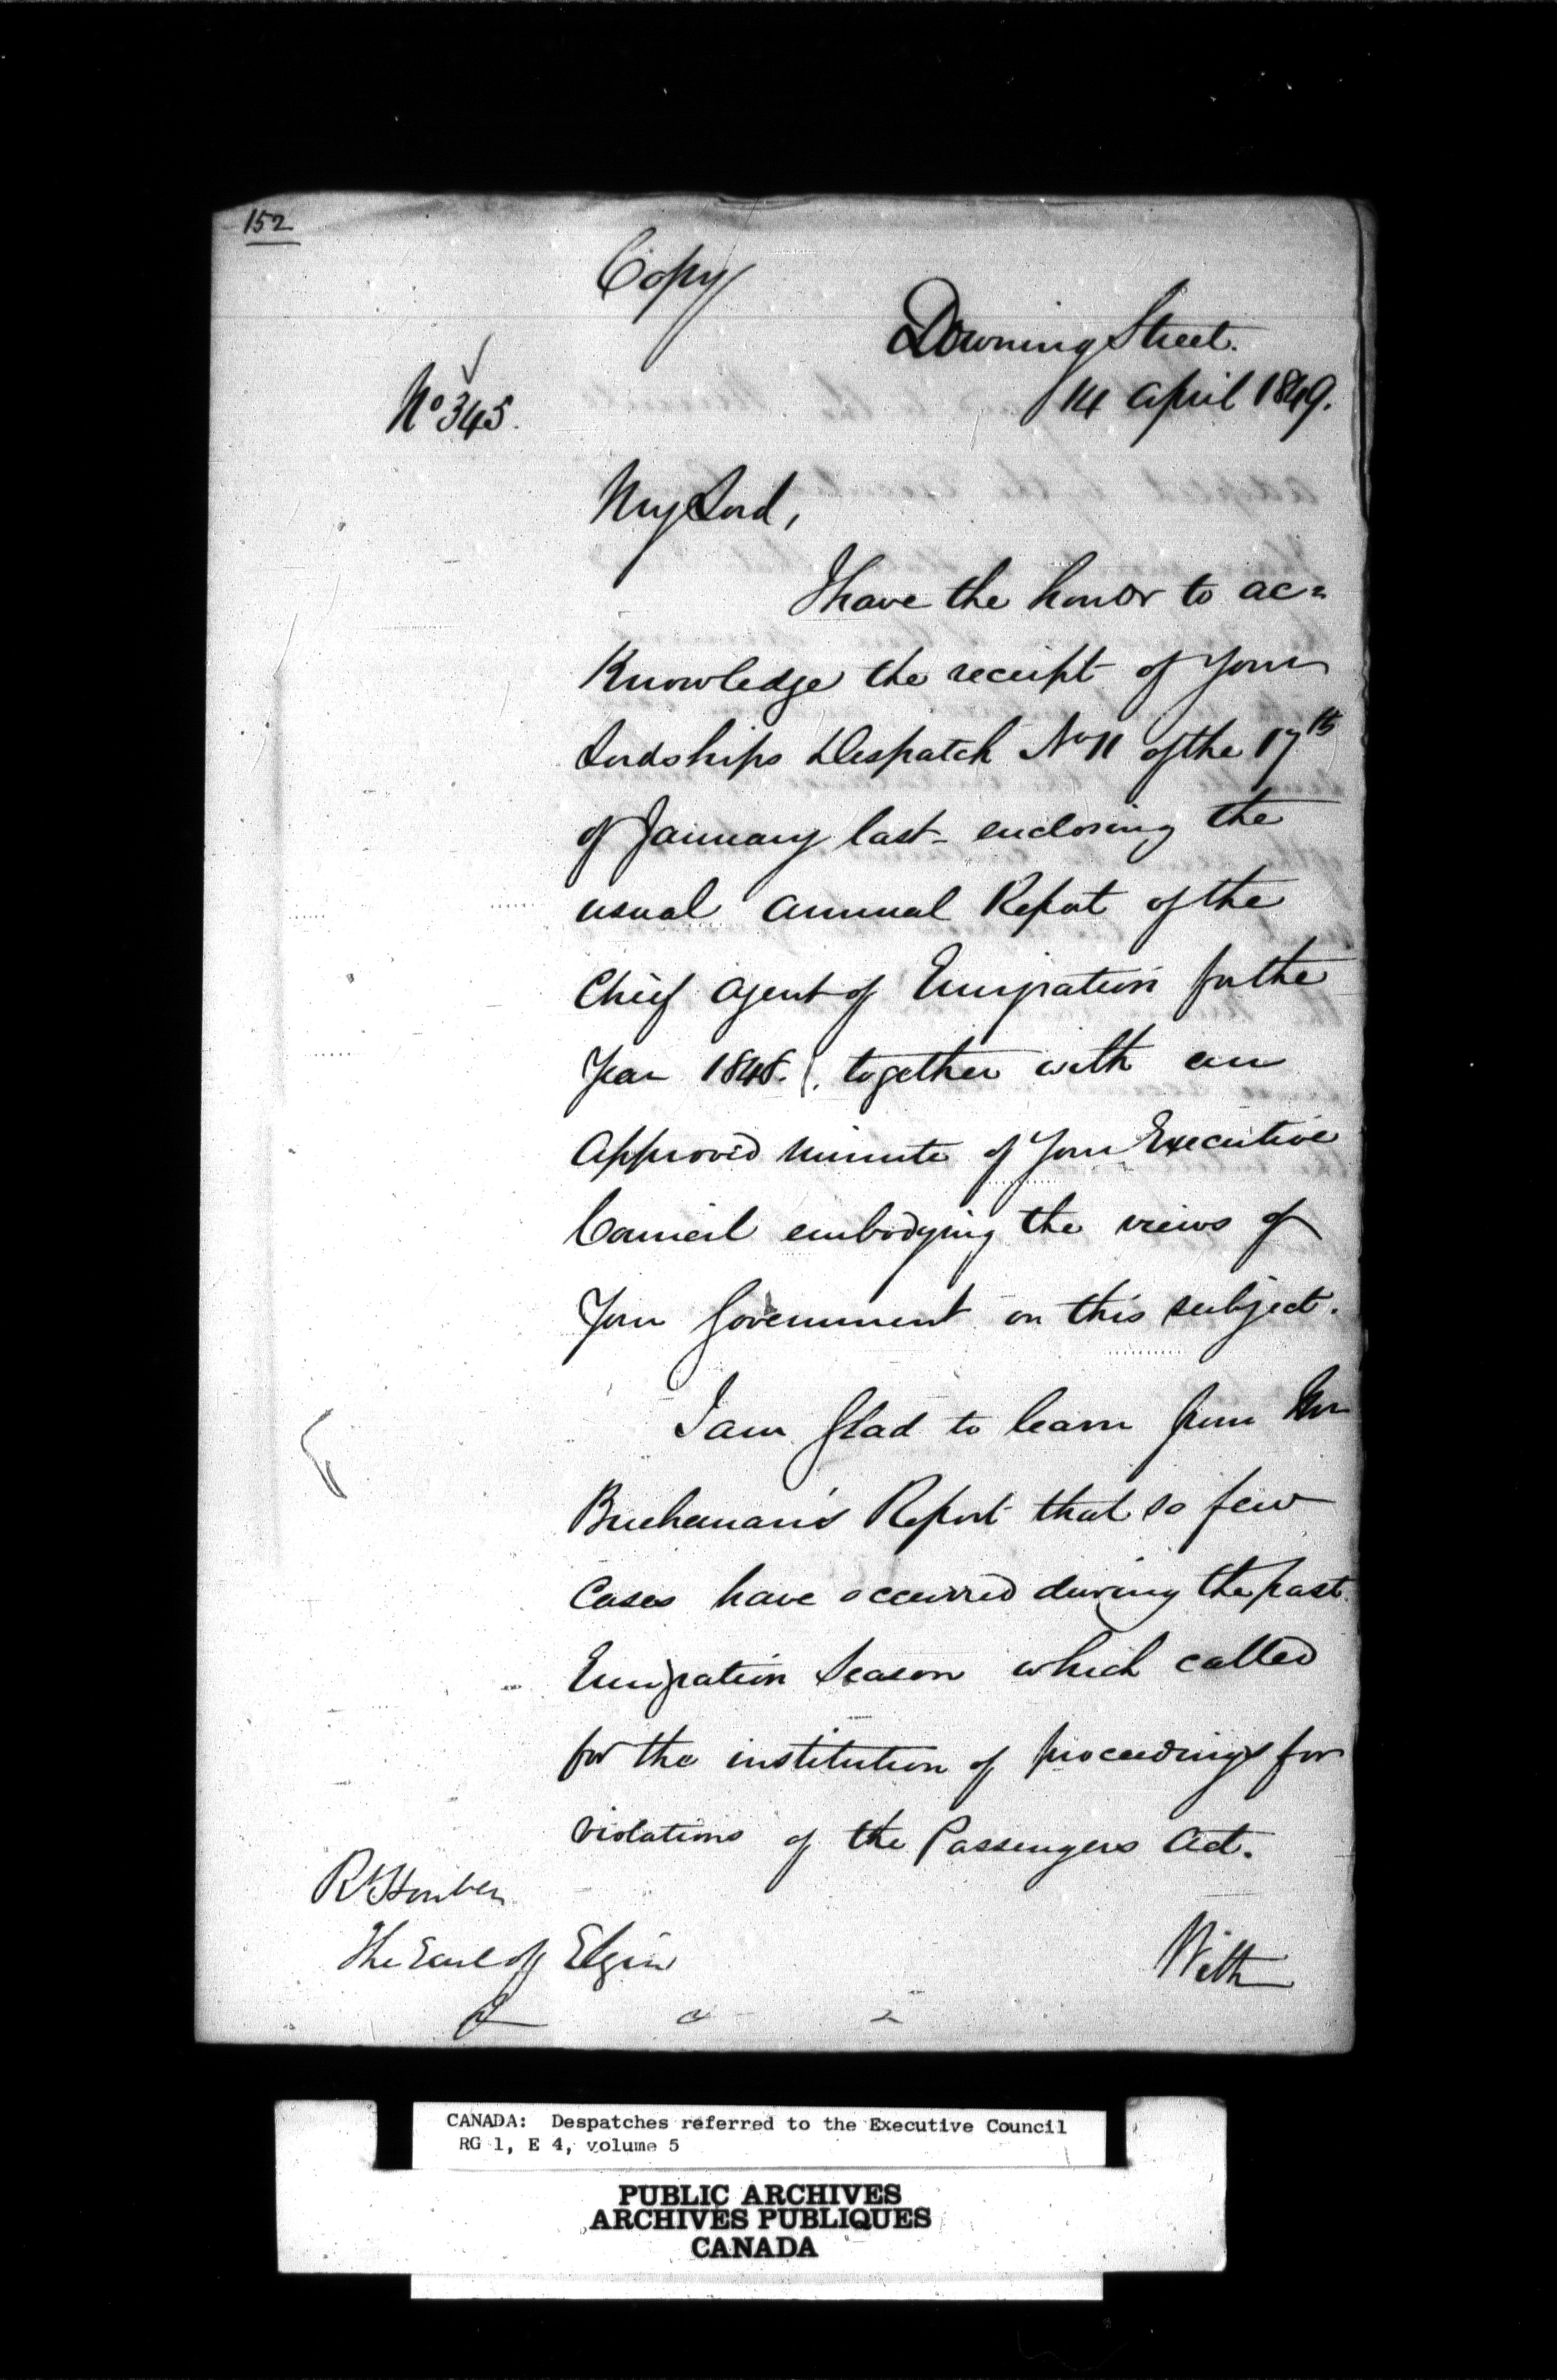 152
Copy
Downing Street.
14 April 1849.
No 345.
My Lord,
I have the honor to ac=
knowledge the receipt of Your
Lordships Despatch No 11 of the 17th
of January last enclosing the
usual Annual Report of the
Chief Agent of Emigration for the
Year 1848. together with an
Approved Minute of Your Executive
Council embodying the views of
Your Government on this subject.
I am glad to learn from Mr
Buchanan's Report that so few
Cases have occurred during the past
Emigration Season which called
for the institution of proceedings for
violations of the Passengers Act.
Rt Honble
The Earl of Elgin
With
CANADA: Despatches referred to the Executive Council
RG 1, E 4, volume 5
PUBLIC ARCHIVES
ARCHIVES PUBLIQUES
CANADA